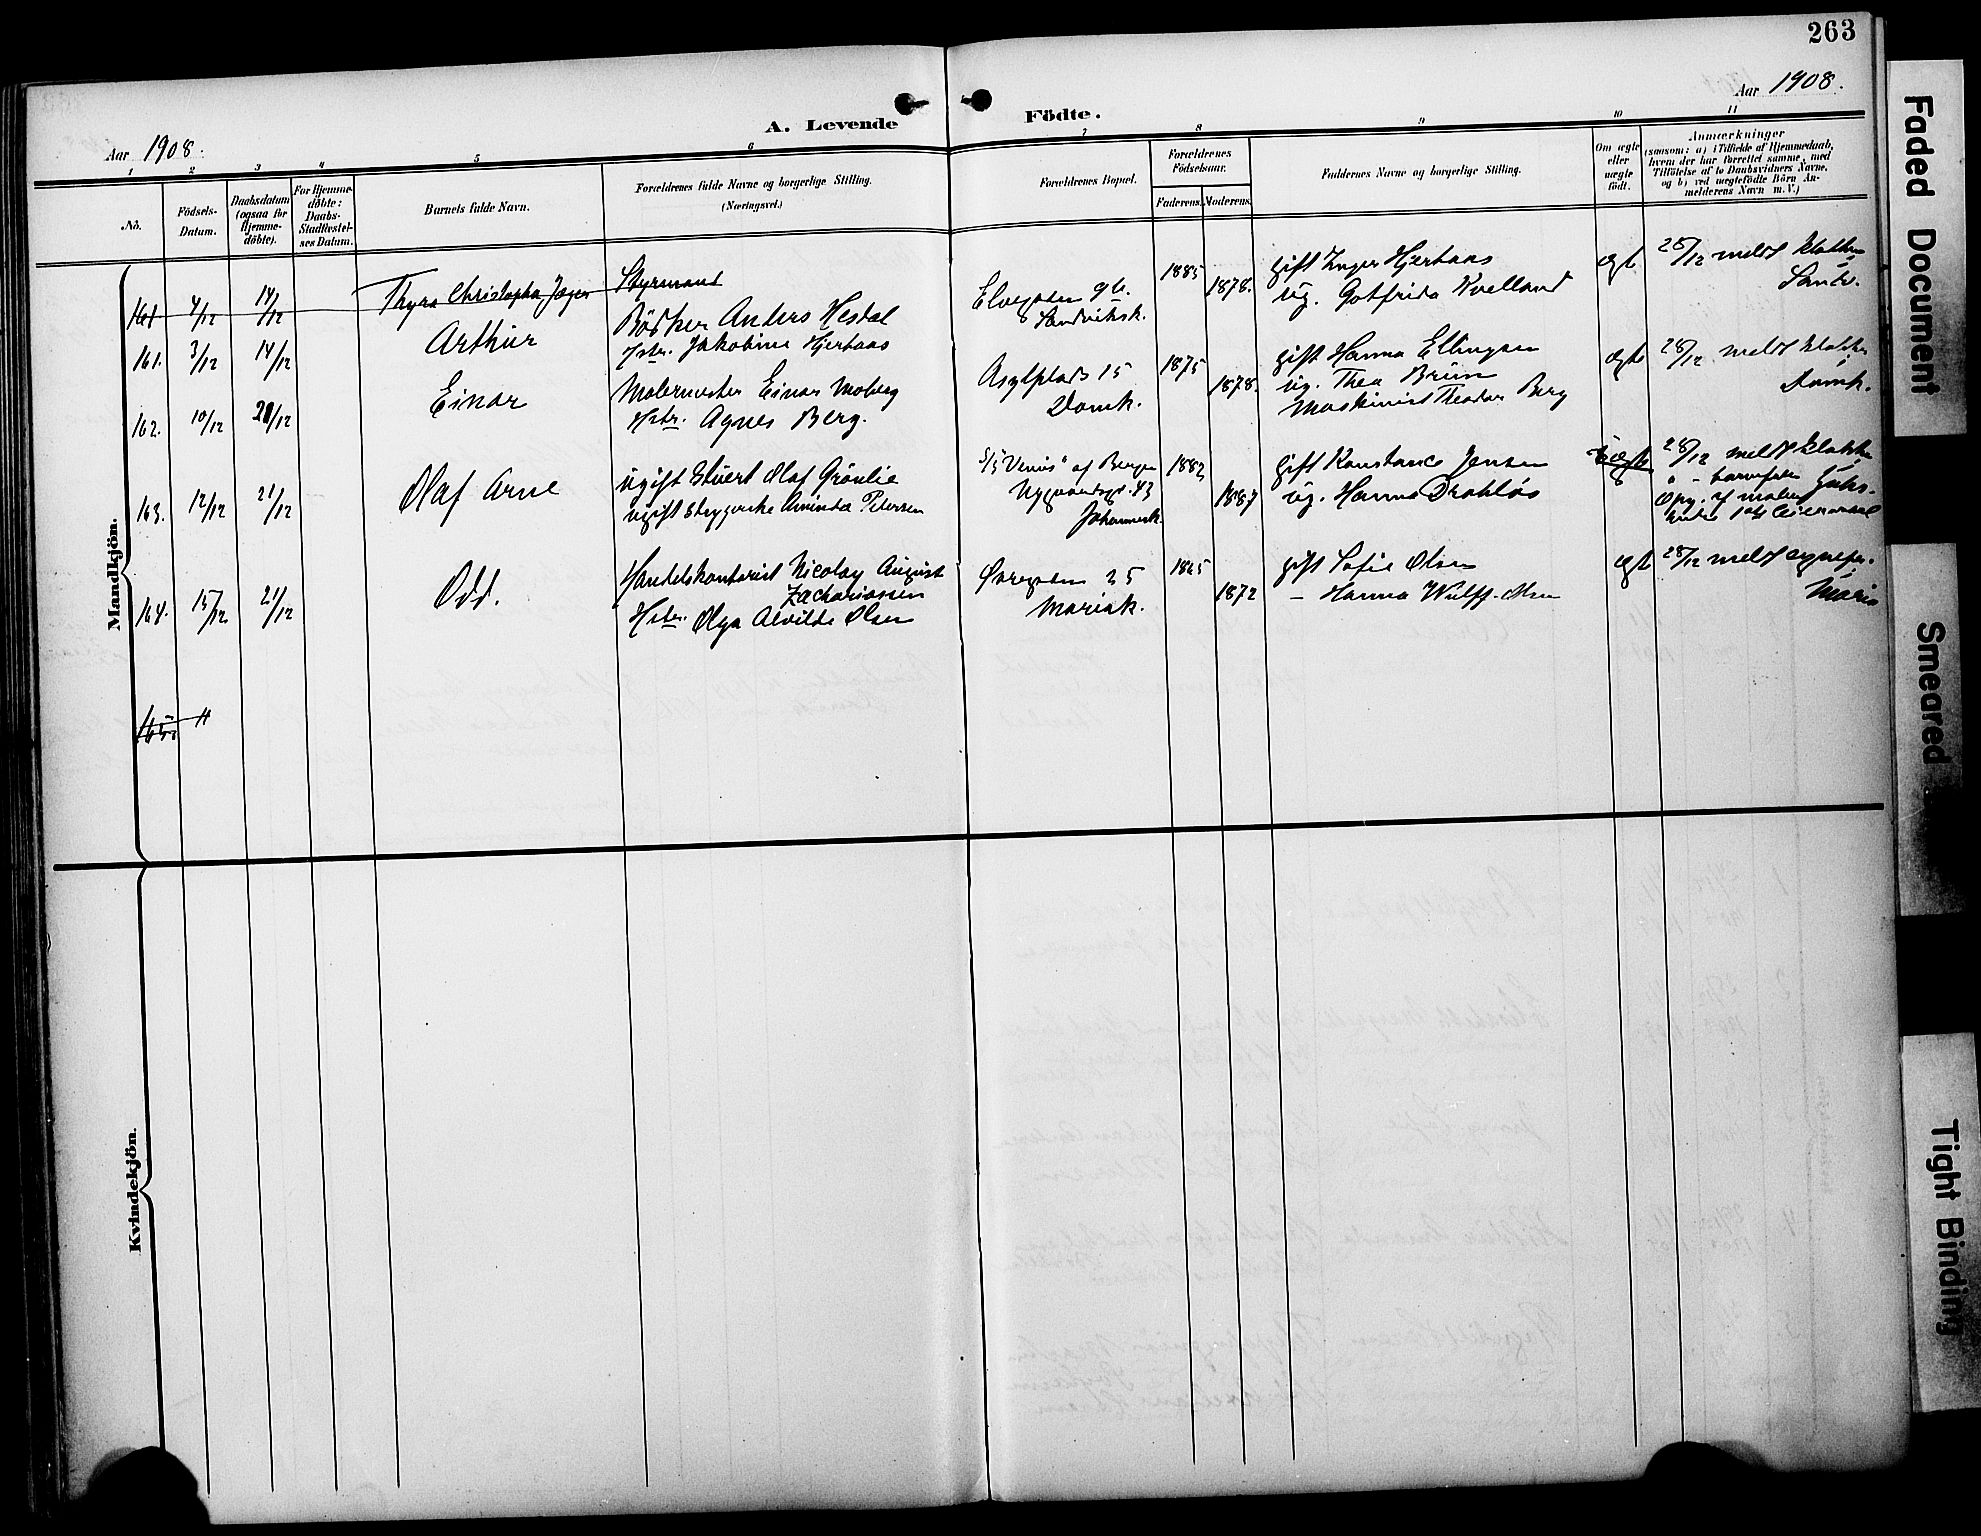 263
Aar 1908.
Aar 1908.
A. Levende Födte.
1 2 3 4 5 6 7 8 9 10 11
No.
Födsels-
Datum.
Daabsdatum
(ogsaa for
Hjemme-
döbte).
For Hjemme-
döbte:
Daabs-
Stadfæstel-
ses Datum.
Barnets fulde Navn.
Forældrenes fulde Navne og borgerlige Stilling.
(Næringsvei.)
Forældrenes Bopæl.
Forældrenes
Födselsaar.
Faderens.
Moderens.
Faddernes Navne og borgerlige Stilling.
Om ægte
eller
uægte
født.
Anmærkninger
(saasom: a) i Tilfælde af Hjemmedaab,
hvem der har forrettet samme, med
Tilföielse af to Daabsvidners Navne,
og b) ved uægtefödte Börn An-
melderens Navn m. V.)
Mandkjön.
161 4/12 14/12 Thyra Christopha Jæger Styrmand
161. 3/12 14/12 Arthur
Bödker Anders Hestal
Hstr. Jakobine Hjertaas
Elvegaden 96.
Sandviksk.
1885 1878.
gift Inger Hjertaas
ug. Gotfrida Kvelland
ægt
28/12 meldt klokker
Sandv.
162. 10/12 20/12 Einar
Malermester Einar Moberg
Hstr. Agnes Berg.
Asylplads 15
Domk.
1875 1878.
gift Hanna Ellingsen
ug. Thea Brun
Maskinist Theodor Berg
ægte
28/12 meldt klokker
Domk.
163. 12/12 21/12 Olaf Arne
ugift Stuert Olaf Grönlie
ugift strygerske Aminda Petersen
S/S "Venus" af Bergen
Nygaardsgd. 43
Johannesk.
1882 1887
gift Konstance Jensen
ug. Hanna Drabløs
28/12 meldt klokker
" - barnefader
Opg. af moder
164. 15/12 21/12 Odd.
Handelskontorist Nicolay August
Zachariassen
Hstr. Olga Alvilde Olsen
Øvregaden 25
Mariak.
1865 1872
gift Sofie Olsen
- Hanna Wulff-Olsen
ægt
28/12 meldt sognepr.
Maria
165. 11
Kvindekjön.
Faded Document
Smeared
Tight Binding